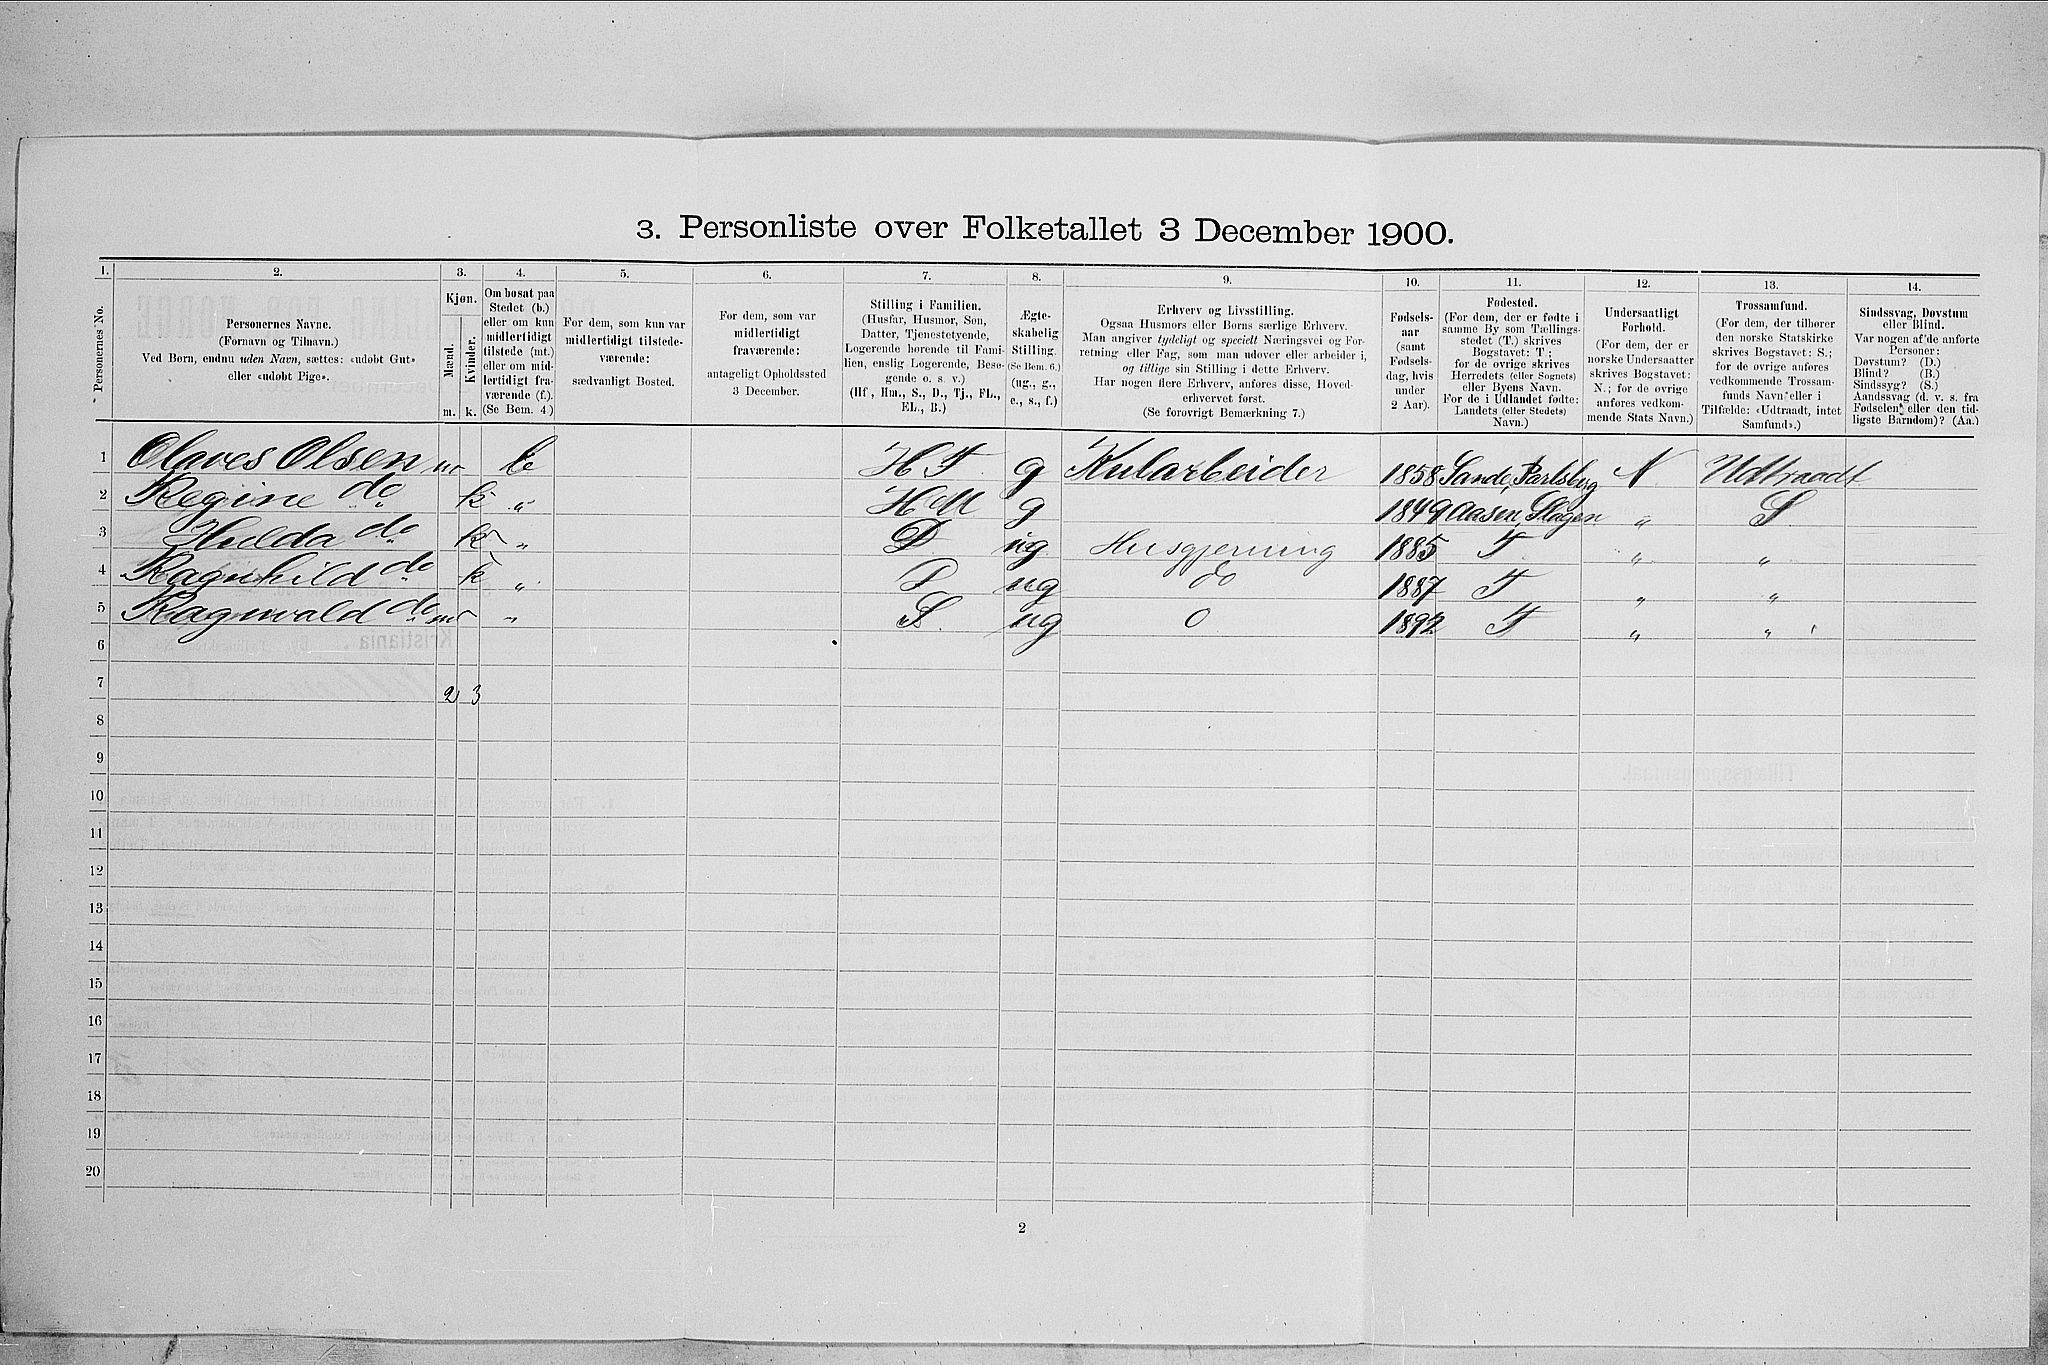 3. Personliste over Folketallet 3 December 1900.
1. 2. 3. 4. 5. 6. 7. 8. 9. 10. 11. 12. 13. 14.
Personernes No.
Personernes Navne.
(Fornavn og Tilnavn.)
Ved Børn, endnu uden Navn, sættes: «udøbt Gut»
eller «udøbt Pige».
Kjøn.
Mænd.
Kvinder.
m. k.
Om bosat paa
Stedet (b.)
eller om kun
midlertidigt
tilstede (mt.)
eller om mid-
lertidigt fra-
værende (f.).
(Se Bem. 4.)
For dem, som kun var
midlertidigt tilstede-
værende:
sædvanligt Bosted.
For dem, som var
midlertidigt
fraværende:
antageligt Opholdssted
3 December.
Stilling i Familien.
(Husfar, Husmor, Søn,
Datter, Tjenestetyende,
Logerende hørende til Fami-
lien, enslig Logerende, Besø-
gende o. s. v.)
(Hf., Hm., S., D., Tj., FL.,
EL., B.)
Ægte-
skabelig
Stilling.
(Se Bem. 6.)
(ug., g.,
e., s., f.)
Erhverv og Livsstilling.
Ogsaa Husmors eller Børns særlige Erhverv.
Man angiver tydeligt og specielt Næringsvei og For-
retning eller Fag, som man udøver eller arbeider i,
og tillige sin Stilling i dette Erhverv.
Har nogen flere Erhverv, anføres disse, Hoved-
erhvervet først.
(Se forøvrigt Bemærkning 7.)
Fødsels-
aar
(samt
Fødsels-
dag, hvis
under
2 Aar).
Fødested.
(For dem, der er fødte i
samme By som Tællings-
stedet (T.) skrives
Bogstavet: T;
for de øvrige skrives
Herredets (eller Sognets)
eller Byens Navn.
For de i Udlandet fødte:
Landets (eller Stedets)
Navn.)
Undersaatligt
Forhold.
(For dem, der er
norske Undersaatter
skrives Bogstavet:
N.; for de øvrige
anføres vedkom-
mende Stats Navn.)
Trossamfund.
(For dem, der tilhører
den norske Statskirke
skrives Bogstavet: S.;
for de øvrige anføres
vedkommende Trossam-
funds Navn eller i
Tilfælde: «Udtraadt, intet
Samfund».)
Sindssvag, Døvstum
eller Blind.
Var nogen af de anførte
Personer:
Døvstum? (D.)
Blind? (B.)
Sindssyg? (S.)
Aandssvag (d. v. s. fra
Fødselen eller den tid-
ligste Barndom)? (Aa.)
1 Olaves Olsen m b H F. g Kularbeider 1858 Sande, Jarlsberg N Udtraadt
2 Regine do k „ H M g 1849 Aasen, Slagen „ S.
3 Hulda do k „ D ug Husgjerning 1885 T „ „
4 Ragnhild do k „ D ug do 1887 T „ „
5 Ragnvald do m „ S. ug 0 1892 T „ „
6
7 2 3
8
9
10
11
12
13
14
15
16
17
18
19
20
2